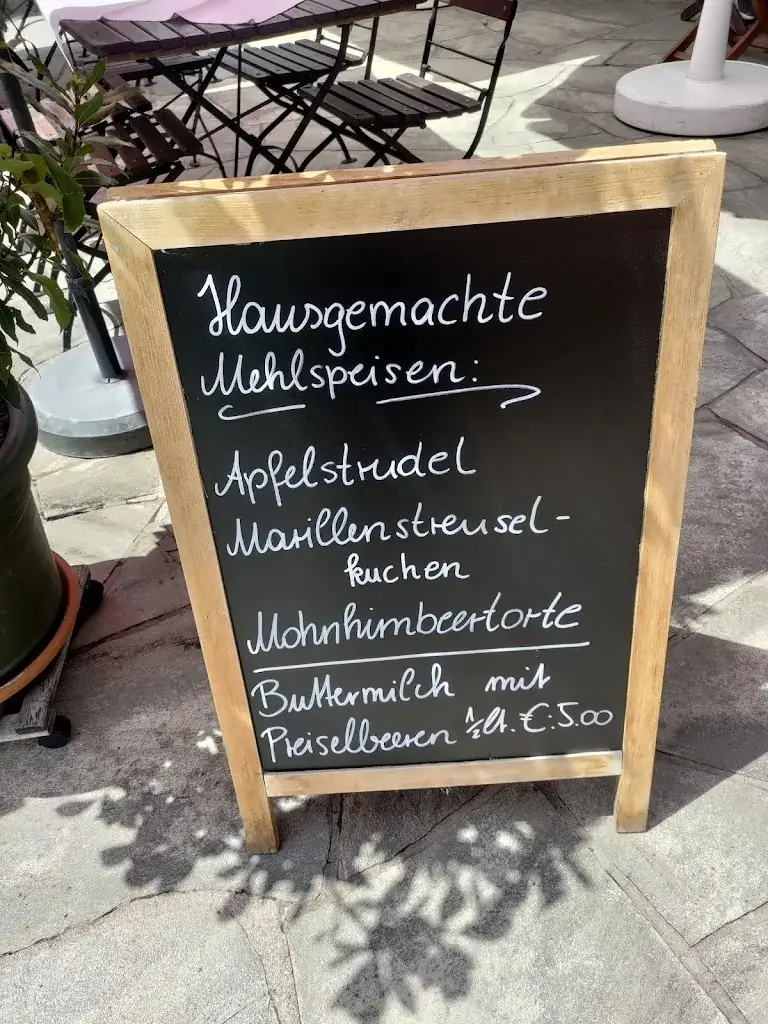 Hausgemachte
Mehlspeisen:
Apfelstrudel
Marillenstreusel-
kuchen
Mohnhimbeertorte
Buttermilch mit
Preiselbeeren ½ lt. €: 5.00